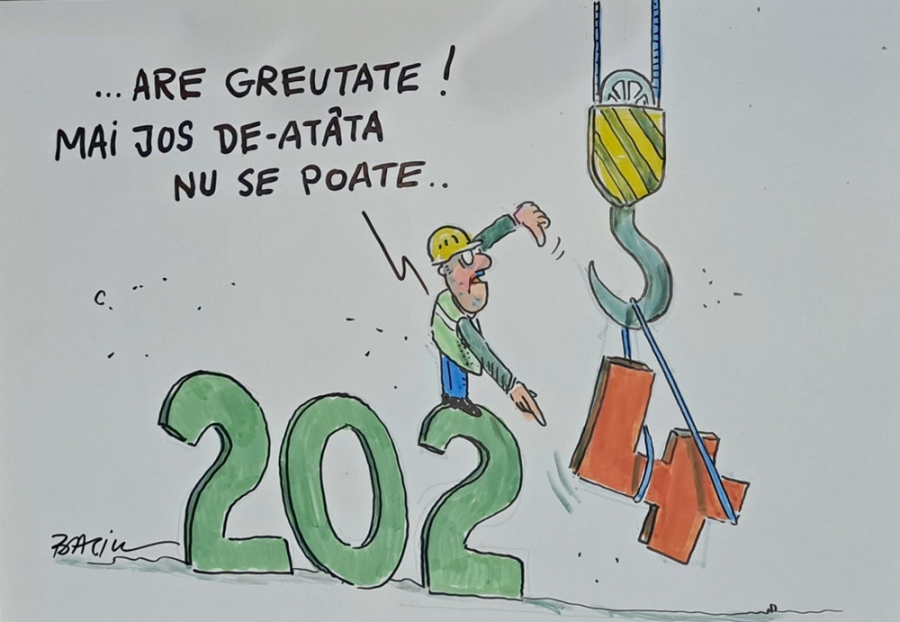 ...ARE GREUTATE!
MAI JOS DE-ATÂTA
NU SE POATE..
202
4
BACIU